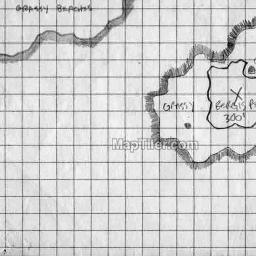 GRASSY BEACHES
GRASSY
300'
MapTiler.com